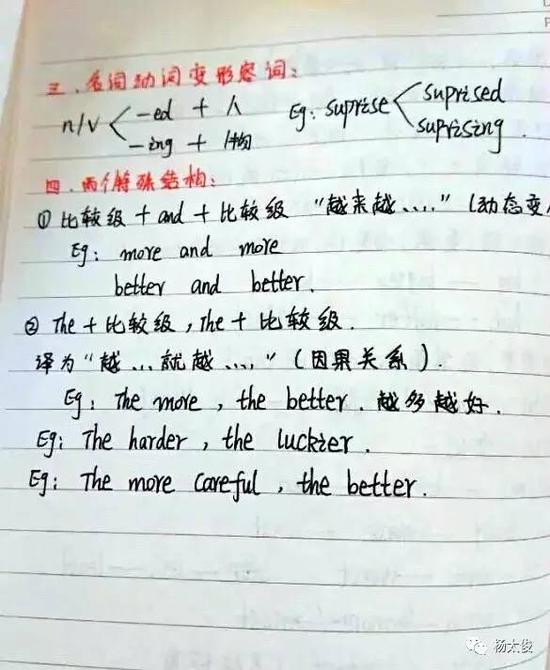 三、名词动词变形容词：
n/v < -ed + 人 Eg: suprise < suprised
-ing + 物 suprising.
四、两个特殊结构：
① 比较级 + and + 比较级 "越来越....." (动态变
Eg: more and more
better and better.
② The + 比较级, the + 比较级.
译为 "越...就越...." (因果关系).
Eg: The more, the better. 越多越好.
Eg: The harder, the luckier.
Eg: The more careful, the better.
杨太俊